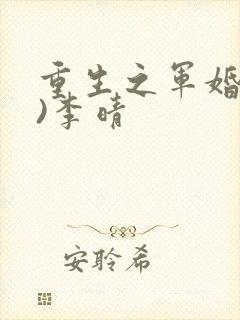 重生之军婚
)李晴
安聆希